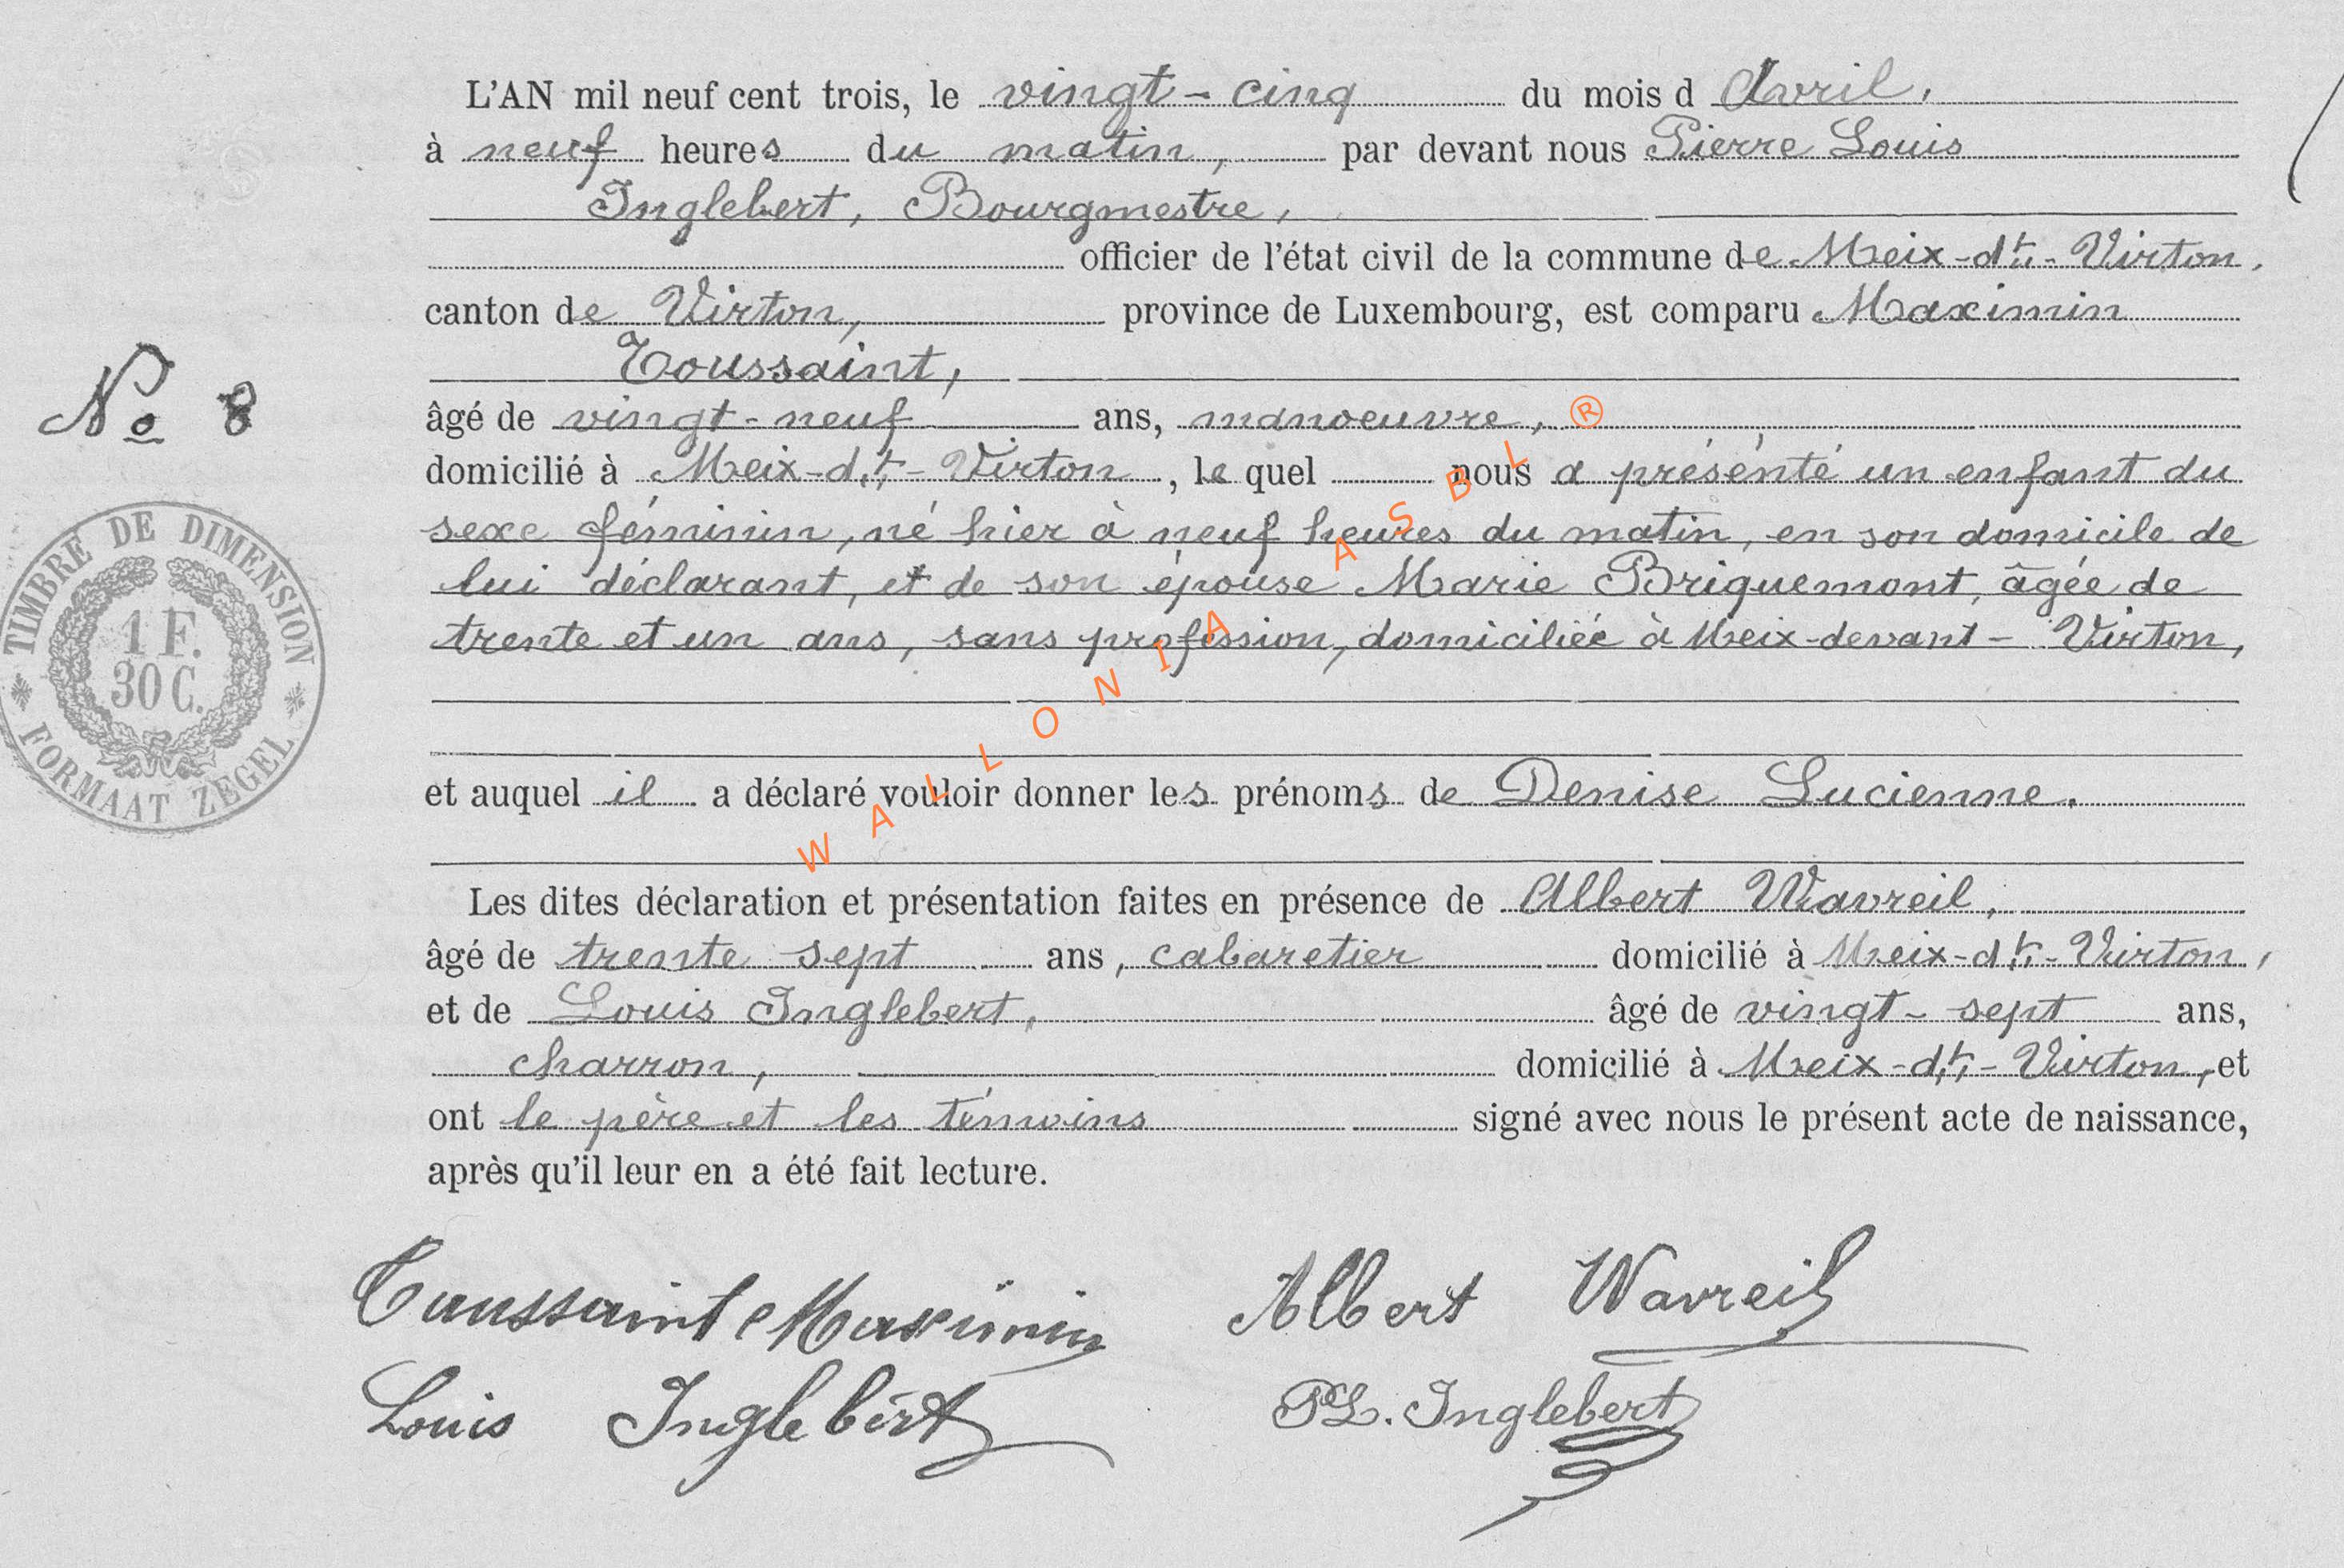 L'AN mil neuf cent trois, le vingt-cinq du mois d Avril,
à neuf heures du matin, par devant nous Pierre Louis
Inglebert, Bourgmestre,
officier de l'état civil de la commune de Meix-dt-Virton,
canton de Virton, province de Luxembourg, est comparu Maximin
Toussaint,
No 8
âgé de vingt-neuf ans, manoeuvre, ®
domicilié à Meix-dt-Virton, le quel nous a présenté un enfant du
sexe féminin, né hier à neuf heures du matin, en son domicile de
lui déclarant, et de son épouse Marie Briquemont, âgée de
trente et un ans, sans profession, domiciliée à Meix-devant-Virton,
TIMBRE DE DIMENSION
1 F.
30 C.
FORMAAT ZEGEL
WALLONIA ASBL
et auquel il a déclaré vouloir donner les prénoms de Denise Lucienne.
Les dites déclaration et présentation faites en présence de Albert Wavreil,
âgé de trente sept ans, cabaretier domicilié à Meix-dt-Virton,
et de Louis Inglebert, âgé de vingt-sept ans,
charron, domicilié à Meix-dt-Virton, et
ont le père et les témoins signé avec nous le présent acte de naissance,
après qu'il leur en a été fait lecture.
Toussaint Maximin Albert Wavreil
Louis Inglebert PL. Inglebert